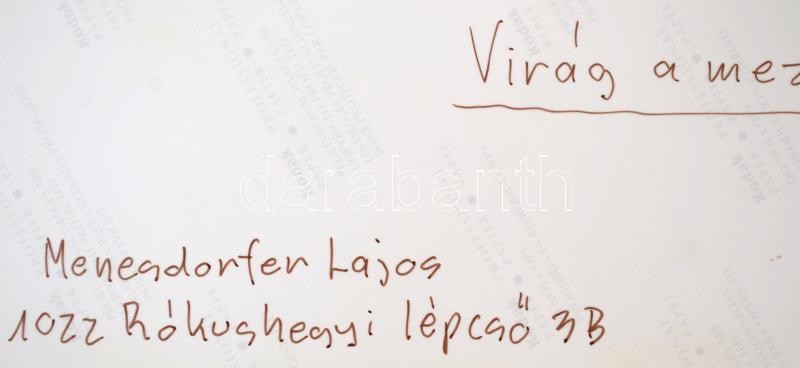 Virág a mez
darabanth
Menesdorfer Lajos
1022 Rókushegyi lépcső 3B